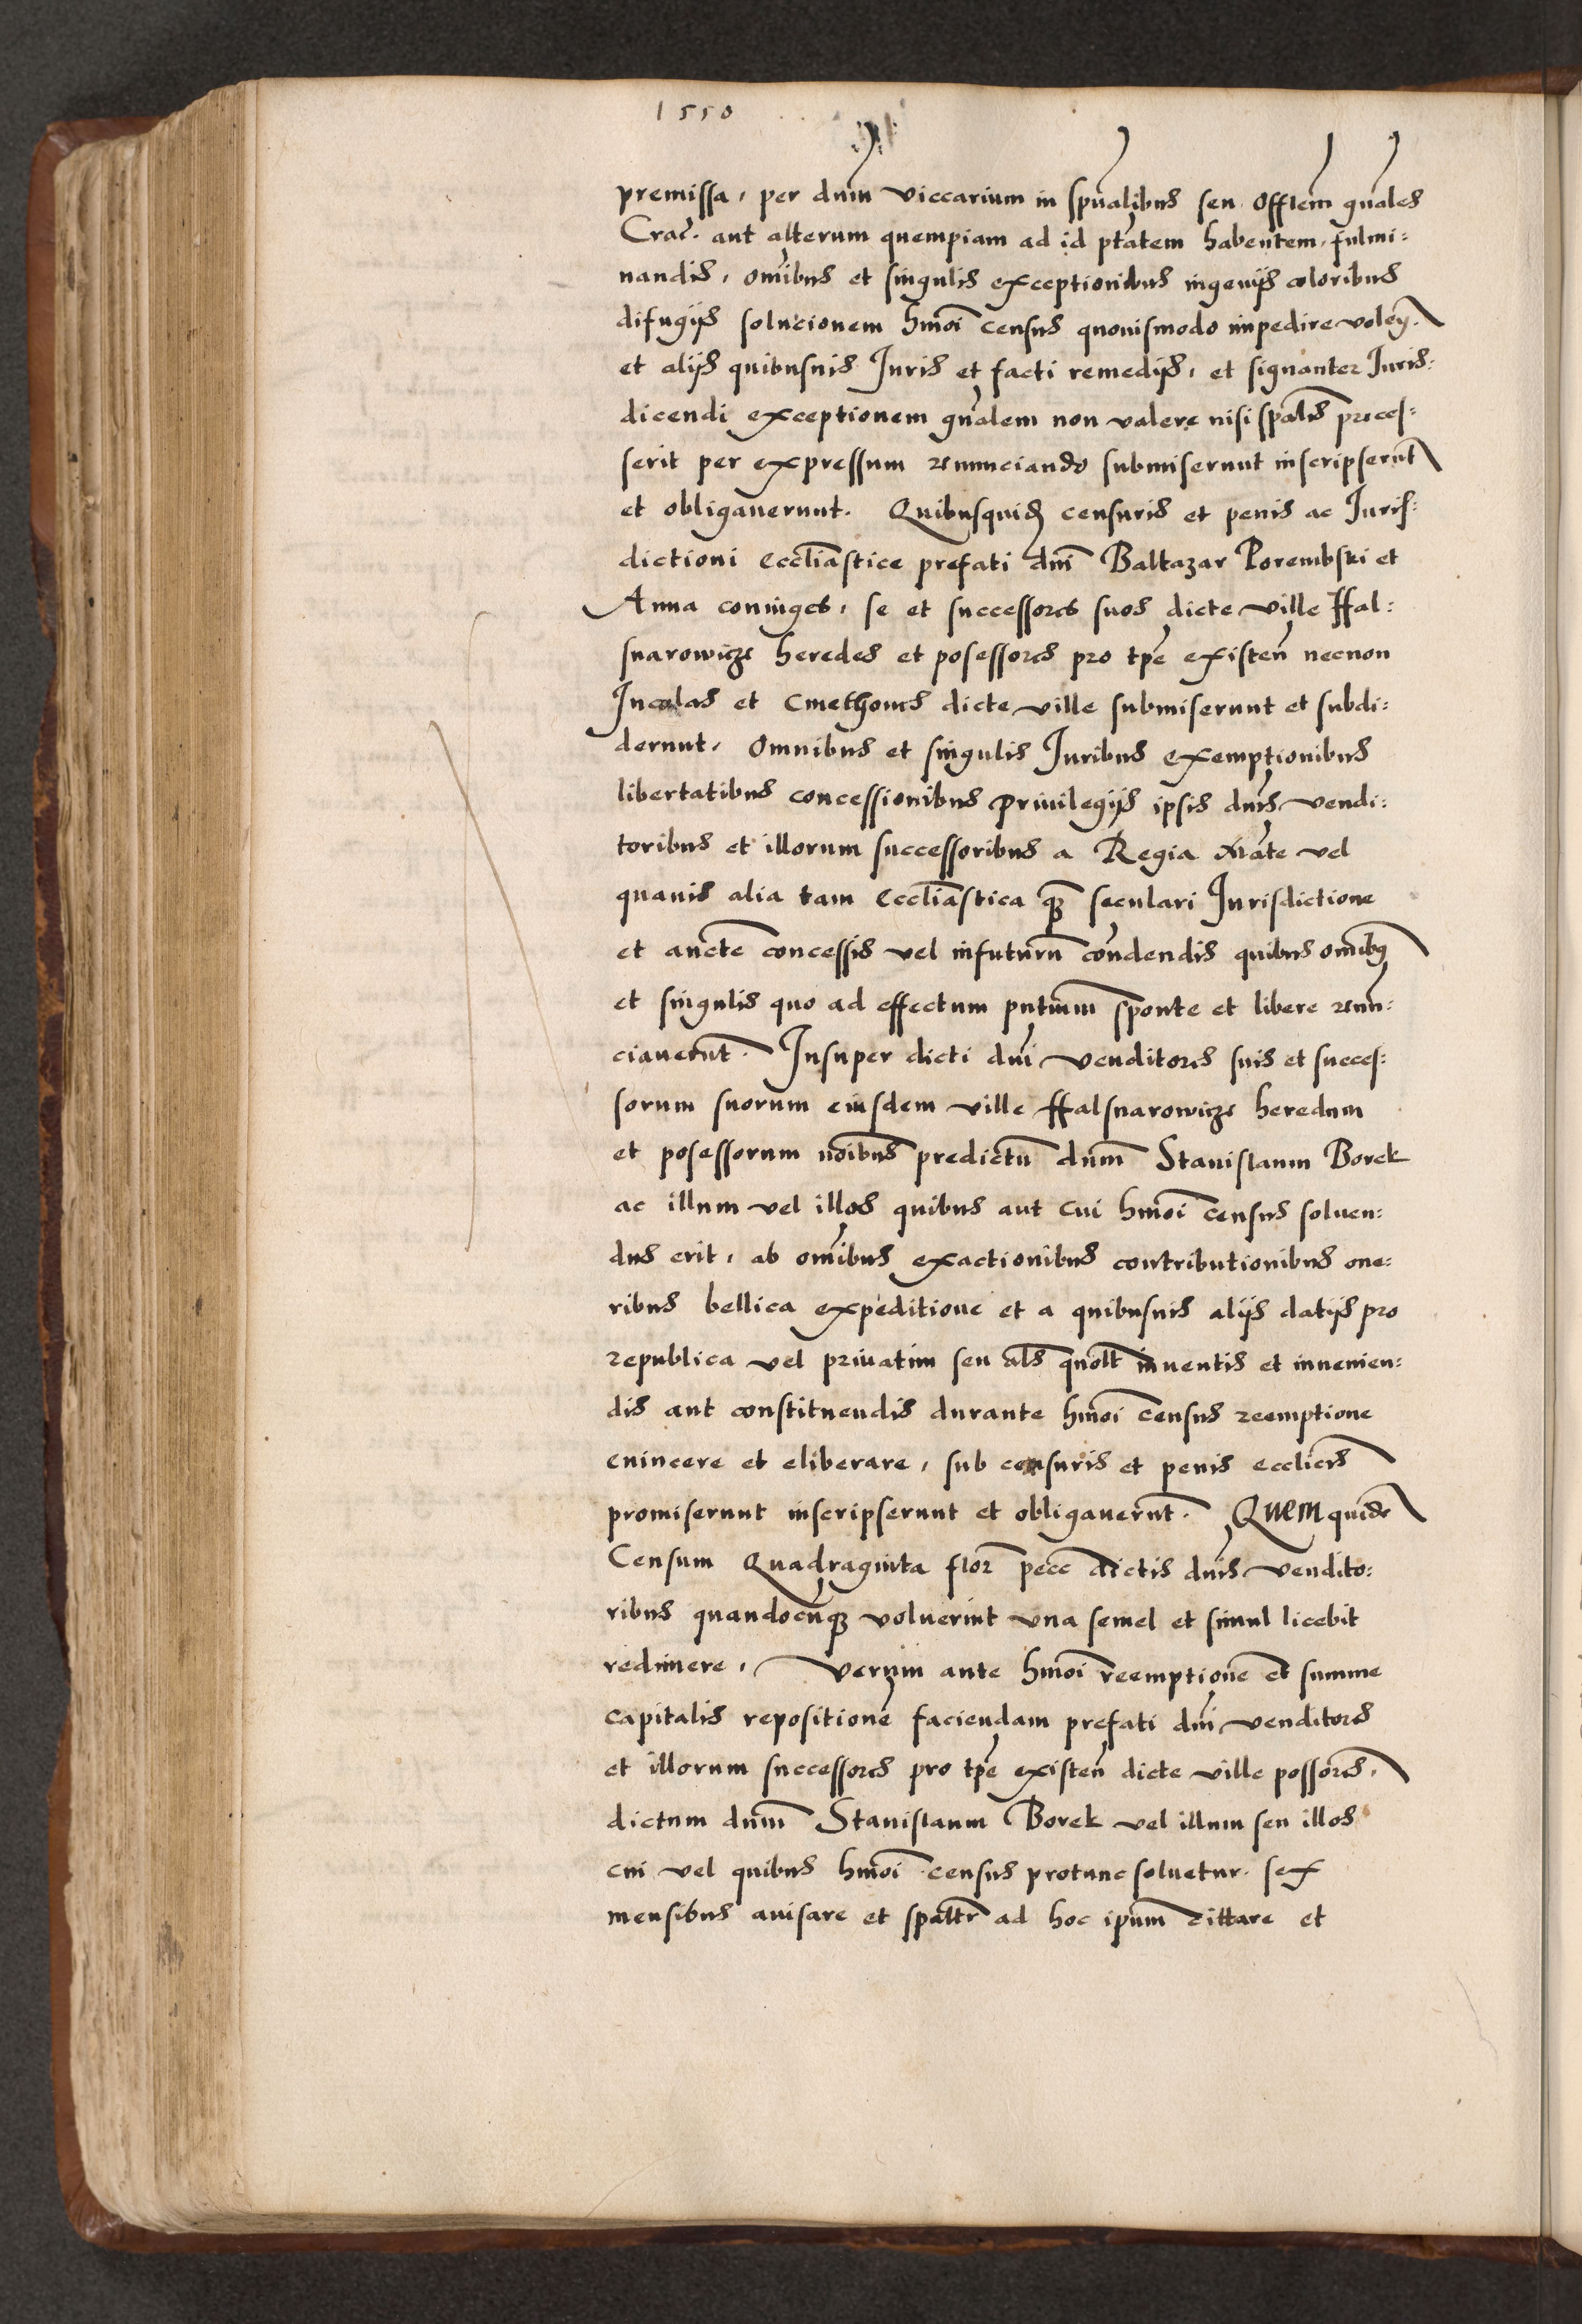 1550
premissa, per dnm viccarium in spualibus seu Offlem gnalem
Crac. aut alterum quempiam ad id ptatem habentem, fulmi:
nandis, omibus et singulis exceptionibus ingenijs coloribus
difugijs solucionem hmoi census quouismodo impedire volen.
et alijs quibusuis Juris et facti remedijs, et signanter Juris:
dicendi exceptionem gnalem non valere nisi spalis proces:
serit per expressum renunciando submiserunt inscripserut
et obligauerunt. Quibusquid censuris et penis ac Juris:
dictioni eccliastice prefati dni Baltazar Porembski et
Anna coniuges, se et successores suos dicte ville Ffal:
snarowicze heredes et posessores pro tpe existen necnon
Incolas et Cmethones dicte ville submiserunt et subdi:
derunt. Omnibus et singulis Juribus exemptionibus
libertatibus concessionibus priuilegijs ipsis dnis vendi:
toribus et illorum successoribus a Regia Mate vel
quauis alia tam eccliastica q3 seculari Jurisdictione
et aucte concessis vel infuturu condendis quibus omibus
et singulis quo ad effectum pntium sponte et libere renun:
ciauerut. Insuper dicti dni venditores suis et succes:
sorum suorum eiusdem ville Ffalsnarowicze heredum
et posessorum noibus predictu dnm Stanislaum Borek
ac illum vel illos quibus aut cui hmoi census soluen:
dus erit, ab omibus exactionibus contributionibus one:
ribus bellica expeditione et a quibusuis alijs datijs pro
republica vel priuatim seu als quolt inuentis et inuenien:
dis aut constituendis durante hmoi census reemptione
euincere et eliberare, sub censuris et penis ecclicis
promiserunt inscripserunt et obligauerut. Quem quide
Censum Quadraginta flor pecc dictis dnis vendito:
ribus quandocunq3 voluerint vna semel et simul licebit
redimere, Verum ante hmoi reemptione et summe
capitalis repositione faciendam prefati dni venditores
et illorum successores pro tpe existen dicte ville possores,
dictum dnm Stanislaum Borek vel illum seu illos
cui vel quibus hmoi census protunc soluetur. sex
mensibus auisare et spaltr ad hoc ipum cittare et